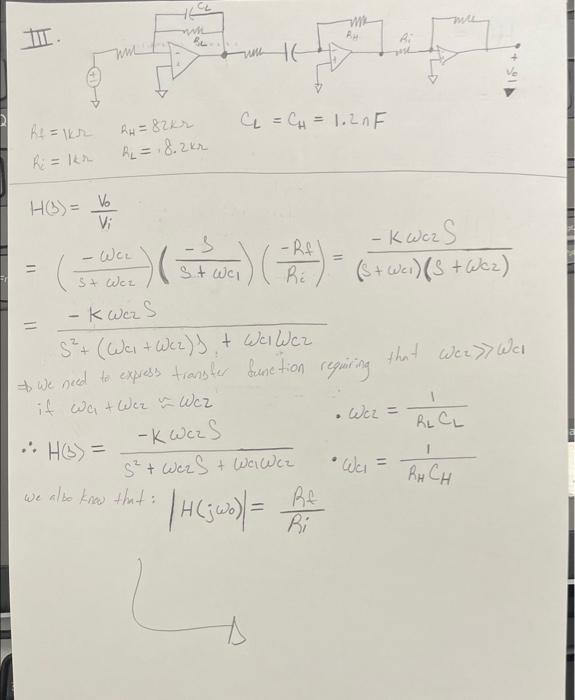 III.
C_L
R_L
R_H
R_i
+
V_o
R_f = 1kΩ   R_H = 82kΩ   C_L = C_H = 1.2nF
R_i = 1kΩ   R_L = 8.2kΩ
H(s) = V_o / V_i
= (-ω_c2 / (s + ω_c2)) (-s / (s + ω_c1)) (-R_f / R_i) = -K ω_c2 s / ((s + ω_c1)(s + ω_c2))
= -K ω_c2 s / (s² + (ω_c1 + ω_c2)s + ω_c1 ω_c2)
⇒ we need to express transfer function requiring that ω_c2 >> ω_c1
if ω_c1 + ω_c2 ≈ ω_c2
• ω_c2 = 1 / (R_L C_L)
∴ H(s) = -K ω_c2 s / (s² + ω_c2 s + ω_c1 ω_c2)
• ω_c1 = 1 / (R_H C_H)
we also know that: |H(jω_o)| = R_f / R_i